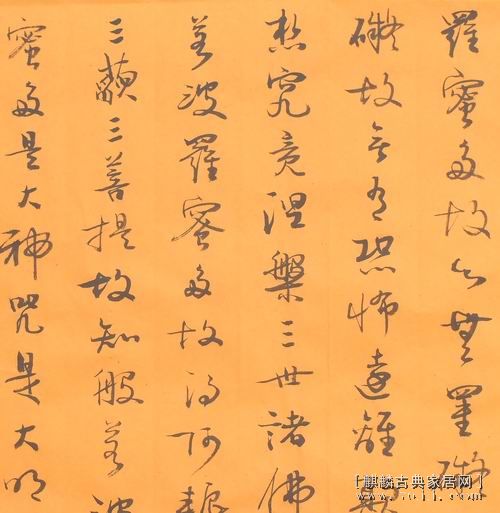 羅蜜多故心無罣礙
礙故無有恐怖遠離顛
想究竟涅槃三世諸佛
若波羅蜜多故得阿耨
三藐三菩提故知般若波
蜜多是大神咒是大明
[麒麟古典家居网]